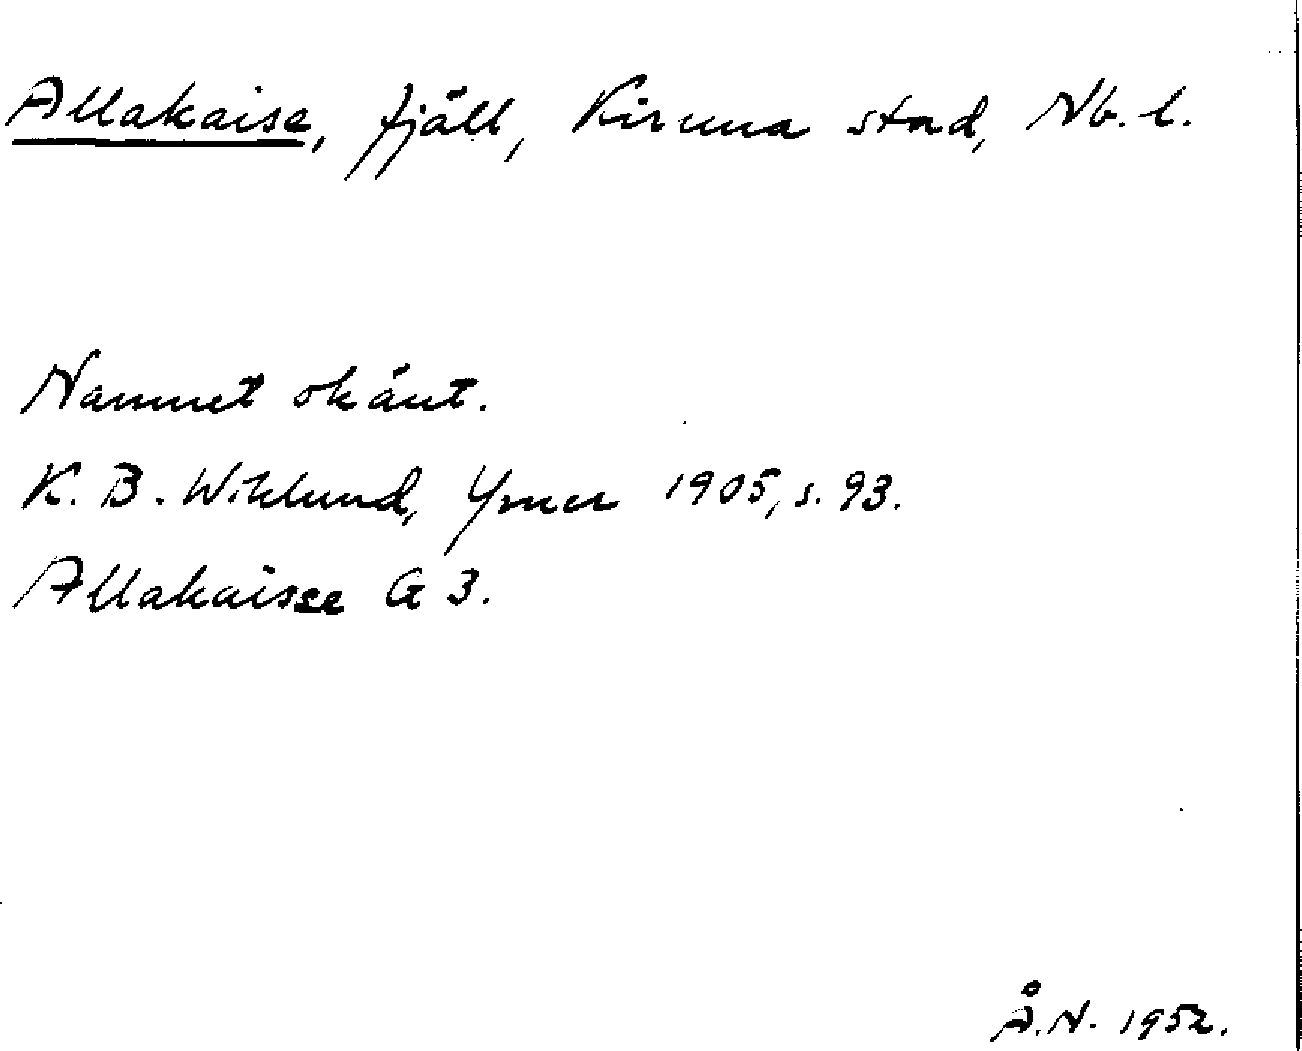 Allakaise, fjäll, Kiruna stad, Nb. l.
Namnet okänt.
K. B. Wiklund, Ymer 1905, s. 93.
Allakaisse G 3.
Å.N. 1952.